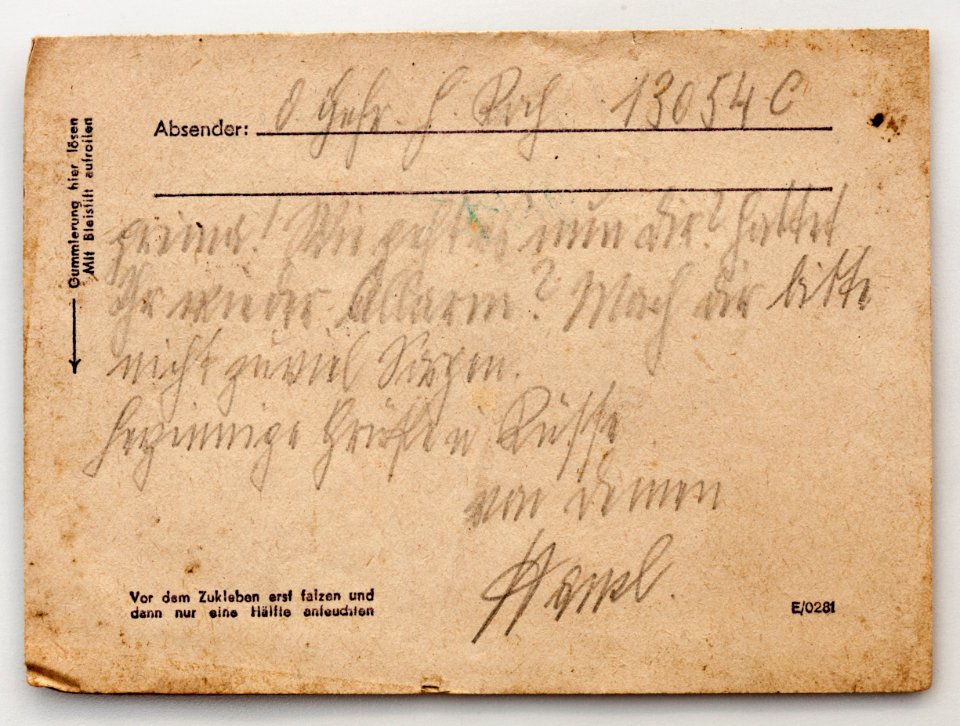 Gummierung hier lösen
Mit Bleistift aufrollen
Absender: O. Gefr. H. Koch 13054 C
prima! Wie geht es nun dir? Hattet
Ihr wieder Allarm? Mach dir bitte
nicht zuviel Sorgen.
Herzinnige Grüße u Küsse
von deinem
Vor dem Zukleben erst falzen und
dann nur eine Hälfte anfeuchten
E/0281